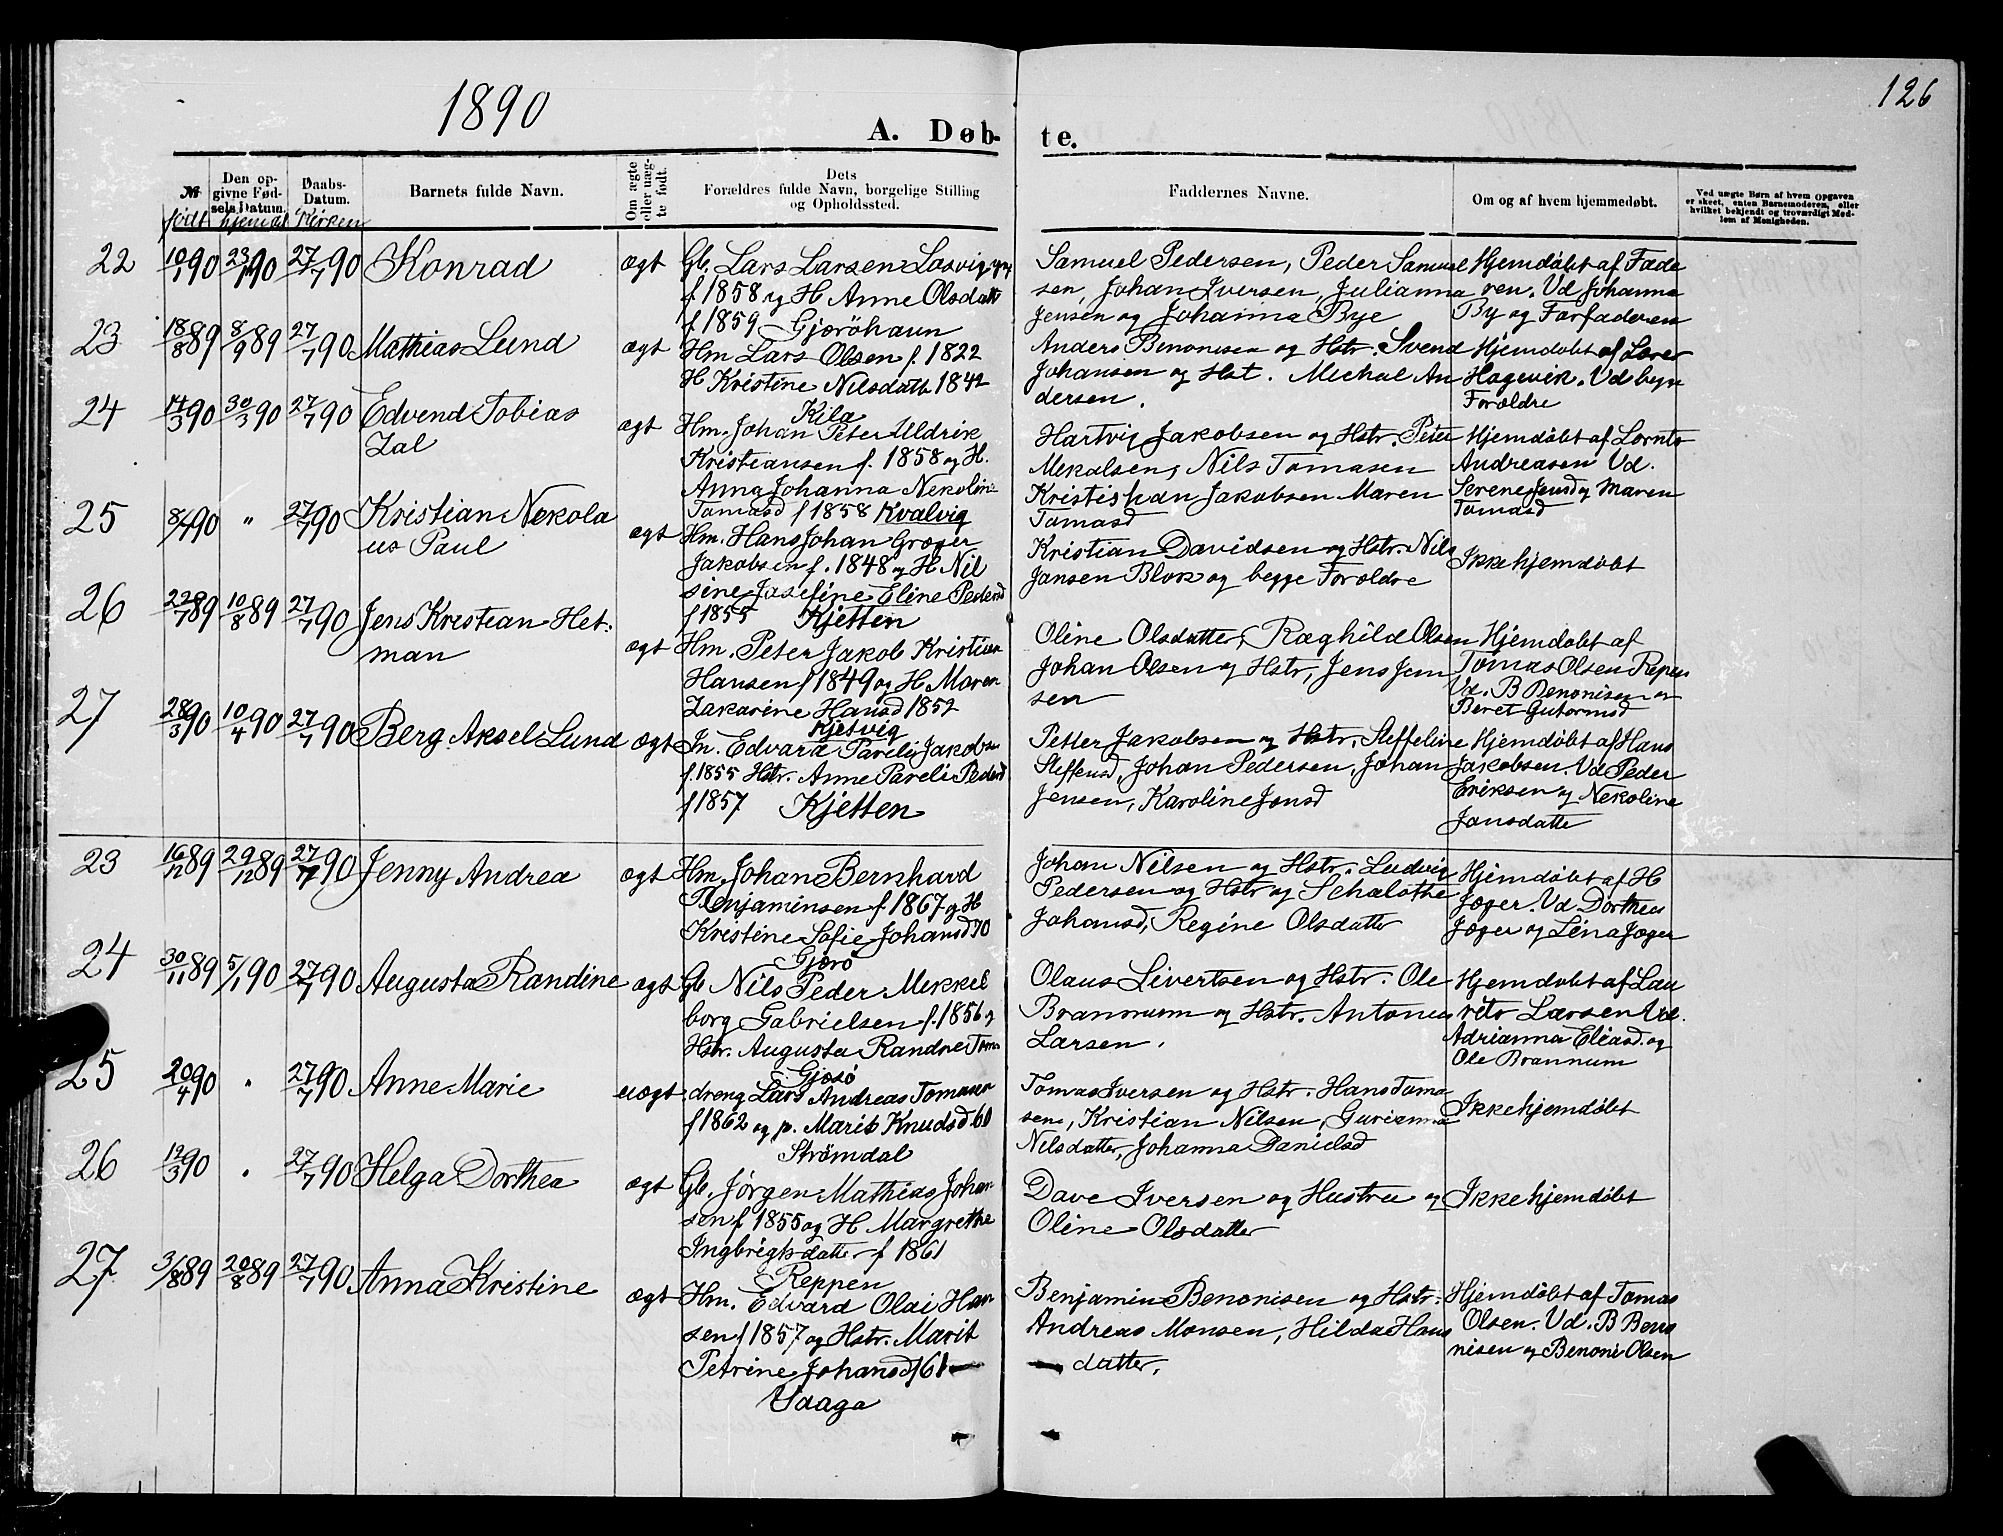 1890
126
A. Døb-
te.
№
Den op-
givne Fød-
sels Datum.
Daabs-
Datum.
Barnets fulde Navn.
Om ægte
eller uæg-
te født.
Dets
Forældres fulde Navn, borgelige Stilling
og Opholdssted.
Faddernes Navne.
Om og af hvem hjemmedøbt.
Ved uægte Børn af hvem Opgaven
er skeet, enten Barnemoderen, eller
hvilket bekjendt og troværdigt Med-
lem af Menigheden.
født hjemdøbt Kirken
22 10/1 90 23/1 90 27/7 90 Konrad ægt Gb. Lars Larsen Losvig
f 1858 og H Anne Olsdatt
f 1859 Gjæröhavn
Samuel Pedersen, Peder Samuel
sen, Johan Iversen, Julianna
Jensen og Johanna Bye
Hjemdøbt af Fade
ren. Vd Johanna
By og Farfaderen
23 18/8 89 8/9 89 27/7 90 Mathias Lund ægt Hm Lars Olsen f. 1822
H Kristine Nilsdatt 1842
Kila
Anders Benonisen og Hstr. Svend
Johansen og Hst. Michal An
dersen.
Hjemdøbt af Lærer
Hagevik. Vd begge
Forældre
24 14/3 90 30/3 90 27/7 90 Edvend Tobias
Zal
ægt Hm. Johan Peter Uldrik
Kristiansen f. 1858 og H.
Anna Johanna Nekoline
Tomasd f 1858 Kvalvig
Hartvig Jakobsen og Hstr. Peter
Mekalsen, Nils Tomasen
Kristishan Jakobsen Maren
Tomasd
Hjemdøbt af Lornts
Andreasen Vd.
Serene Jensd og Maren
Tomasd
25 8/4 90 " 27/7 90 Kristian Nekola
us Paul
ægt Hm. Hans Johan Grøger
Jakobsen f. 1848 og H Nil
sine Josefine Eline Pedersd
f 1855 Kjetten
Kristian Davidsen og Hstr. Nils
Jansen Blok og begge Foroldre
Ikke hjemdøbt
26 22/7 89 10/8 89 27/7 90 Jens Kristian Het-
man
ægt Hm. Peter Jakob Kristian
Hansen f 1849 og H Maren
Zakarine Hansd 1852
Kjetvig
Oline Olsdatter, Raghild Olsen
Johan Olsen og Hstr, Jens Jen
sen
Hjemdøbt af
Tomas Olsen Repen
Vd. B Benonisen og
Beret Gutormsd
27 28/3 90 10/4 90 27/7 90 Berg Aksel Lund ægt In. Edvard Pareli Jakobsen
f. 1855 Hstr. Anne Pareli Pedersd
f 1857 Kjetten
Petter Jakobsen og Hstr, Steffeline
Steffensd, Johan Pedersen, Johan
Jensen, Karoline Jonsd
Hjemdøbt af Hans
Jakobsen. Vd Peder
Eriksen og Nekoline
Jansdatte
23 16/12 89 29/12 89 27/7 90 Jenny Andrea ægt Hm. Johan Bernhard
Benjaminsen f 1867 og H
Kristine Sofie Johansd 70
Gjærö
Johan Nilsen og Hstr. Ludvig
Pedersen og Hstr og Schalothe
Johansd, Regine Olsdatter
Hjemdøbt af H
Jøger. Vd Dorthea
Jøger og Lina Jøger
24 30/11 89 5/1 90 27/7 90 Augusta Randine ægt Gb Nils Peder Mekkel
borg Gabrielsen f. 1856 og
Hstr. Augusta Randne Tom
Gjæsö
Olaus Livertsen og Hstr. Ole
Brannum og Hstr. Antonus
Larsen.
Hjemdøbt af Lau
rits Larsen Vd.
Adrianna Eliasd. og
Ole Brannum
25 20/4 90 " 27/7 90 Anne Marie uægt dreng Lars Andreas Tomasen
f 1862 og p. Marit Knudsd 60
Strømdal
Tomas Iversen og Hstr. Hans Toma
sen, Kristian Nilsen, Gurianna
Nilsdatter, Johanna Danielsd
Ikke hjemdøbt
26 12/3 90 " 27/7 90 Helga Dorthea ægt Gb. Jørgen Mathias Johan
sen f 1855 og H. Margrethe
Ingbrigtsdatter f 1861
Reppen
Dave Iversen og Hustru og
Oline Olsdatter
Ikke hjemdøbt
27 3/8 89 20/8 89 27/7 90 Anna Kristine ægt Hm. Edvard Olai Han
sen f 1857 og Hstr. Marit
Petrine Johansd f 61
Vaaga
Benjamin Benonisen og Hstr.
Andreas Monsen, Hilda Hans
datter.
Hjemdøbt af Tomas
Olsen. Vd. B Beno
nisen og Benoni Olsen